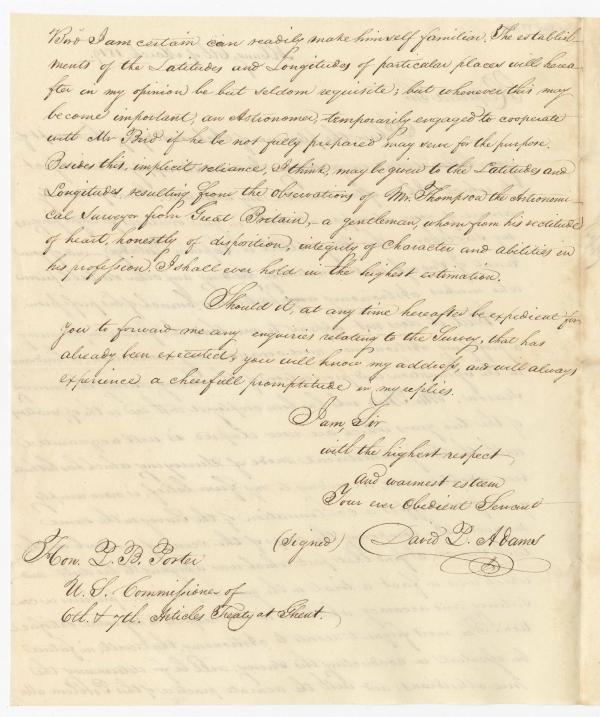 Bird I am certain can readily make himself familiar. The establish-
ments of the Latitudes and Longitudes of particular places will herea-
fter in my opinion be but seldom requisite; but whenever this may
become important, an Astronomer, temporarily engaged to cooperate
with Mr Bird if he be not fully prepared may serve for the purpose.
Besides this, implicit reliance, I think, may be given to the Latitudes and
Longitudes resulting from the observations of Mr. Thompson the Astronomi-
cal Surveyor from Great Britain, – a gentleman, whom from his rectitude
of heart, honesty of disposition, integrity of Character and abilities in
his profession, I shall ever hold in the highest estimation.
Should it, at any time hereafter be expedient for
you to forward me any enquiries relating to the Survey, that has
already been executed, you will know my address, and will always
experience a cheerfull promptitude in my replies.
I am, Sir
with the highest respect
and warmest esteem
Your ever Obedient Servant
(Signed) David P. Adams
Hon. P. B. Porter
U. S. Commissioner of
6th. & 7th. Articles Treaty at Ghent.